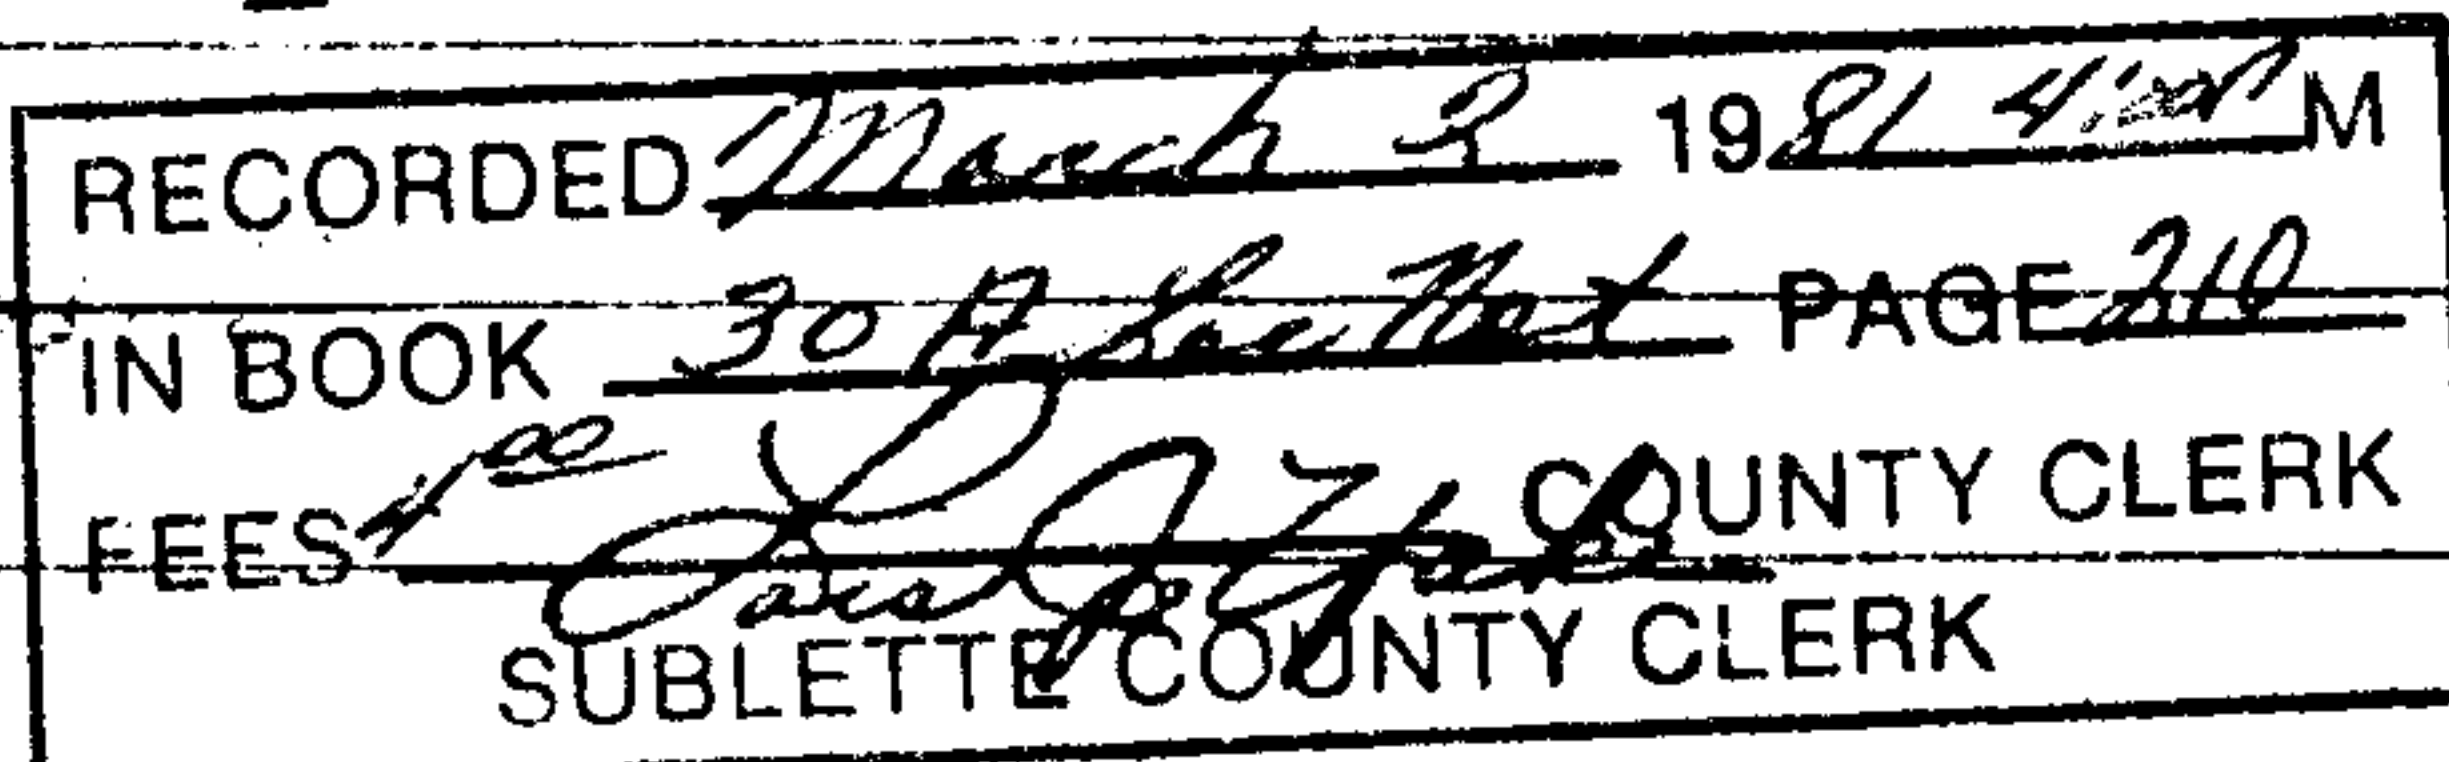 RECORDED March 3 1981 4:00 P M
IN BOOK 30 A PAGE 210
FEES 4 00 COUNTY CLERK
SUBLETTE COUNTY CLERK